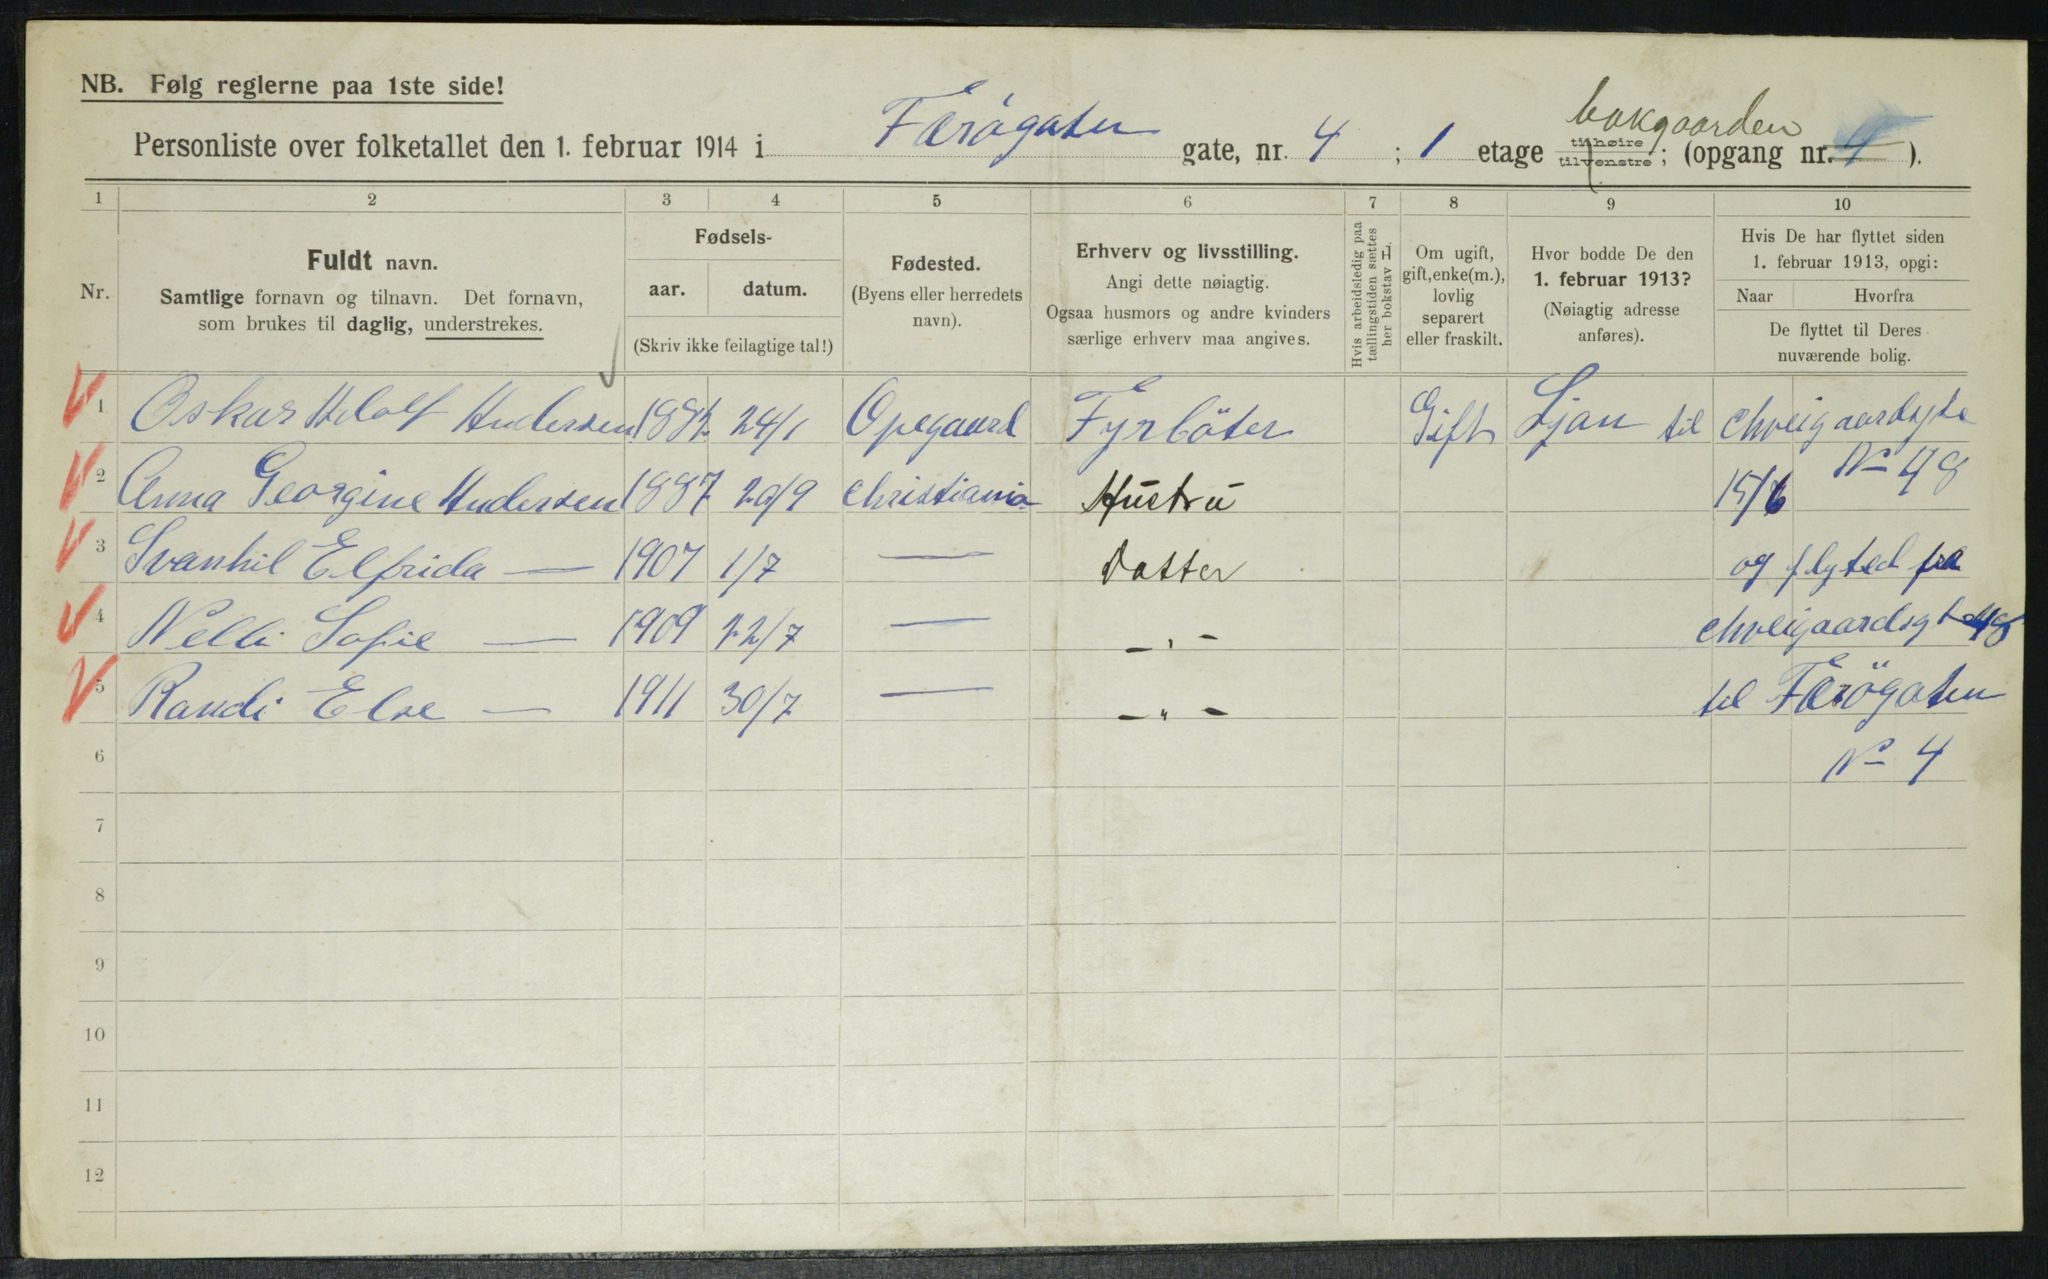 NB. Følg reglerne paa 1ste side!
bakgaarden
Personliste over folketallet den 1. februar 1914 i Færögaten gate, nr. 4 ; 1 etage til høire til venstre ; (opgang nr. 4 ).
1 2 3 4 5 6 7 8 9 10
Nr.
Fuldt navn.
Samtlige fornavn og tilnavn. Det fornavn,
som brukes til daglig, understrekes.
Fødsels-
aar. datum.
(Skriv ikke feilagtige tal!)
Fødested.
(Byens eller herredets
navn).
Erhverv og livsstilling.
Angi dette nøiagtig.
Ogsaa husmors og andre kvinders
særlige erhverv maa angives.
Hvis arbeidsledig paa
tællingstiden sættes
her bokstav L.
Om ugift,
gift, enke(m.),
lovlig
separert
eller fraskilt.
Hvor bodde De den
1. februar 1913?
(Nøiagtig adresse
anføres).
Hvis De har flyttet siden
1. februar 1913, opgi:
Naar Hvorfra
De flyttet til Deres
nuværende bolig.
1 Oskar Adolf Andersen 1882 24/1 Opegaard Fyrböter Gift Ljan til chveigaardsgte
No 48
2 Anna Georgine Andersen 1887 29/9 Christiania Hustru 15/6
3 Svanhil Elfrida — 1907 1/7 — Datter og flyted fra
4 Nelli Sofie — 1909 22/7 — -"- chveigaardsgt 48
5 Randi Else — 1911 30/7 — -"- til Færögaten
6 No 4
7
8
9
10
11
12